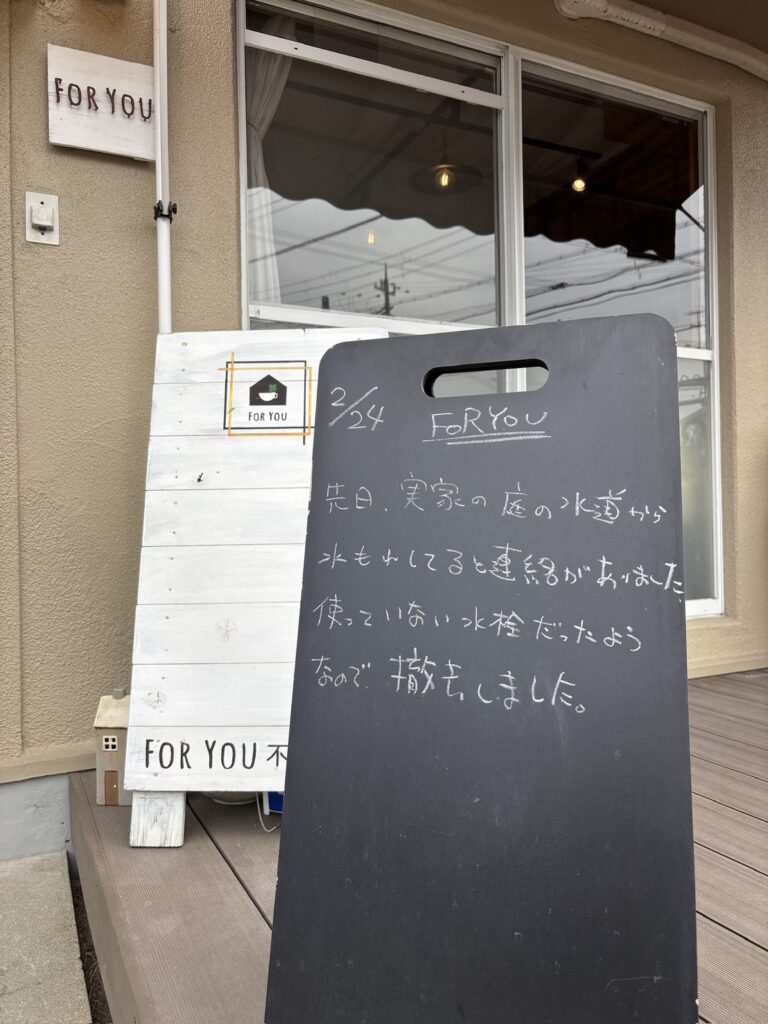 FOR YOU
FOR YOU
2/24
FOR YOU
先日、実家の庭の水道から
水もれしてると連絡がありました。
使っていない水栓だったよう
なので撤去しました。
FOR YOU 不